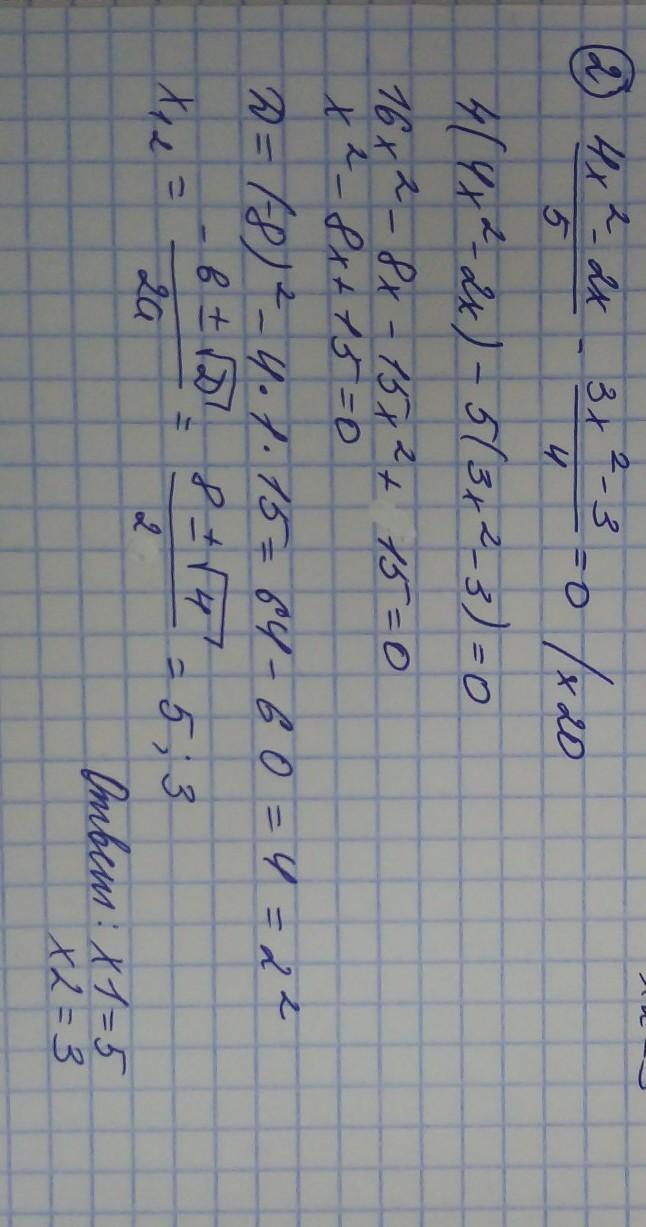 ② (4x² - 2x)/5 - (3x² - 3)/4 = 0 /x20
4(4x² - 2x) - 5(3x² - 3) = 0
16x² - 8x - 15x² + 15 = 0
x² - 8x + 15 = 0
D = (-8)² - 4·1·15 = 64 - 60 = 4 = 2²
x₁,₂ = (-в ± √D)/2a = (8 ± √4)/2 = 5; 3
Ответ: x1 = 5
x2 = 3